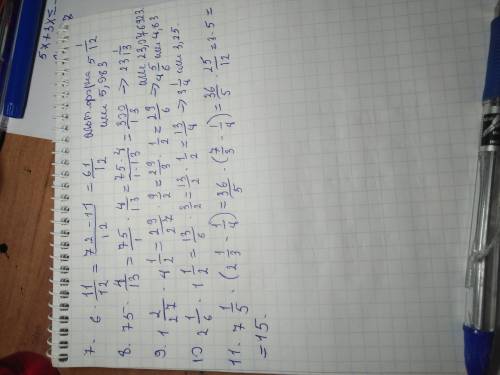 5x+3x=
7. 6 · 11/12 = 72-11/12 = 61/12 5 1/12
или 5,983
8. 75 · 4/13 = 75/1 · 4/13 = 75·4/1·13 = 300/13 => 23 1/13
или 23,076923.
9. 1 2/27 · 4 1/2 = 29/27 · 9/2 = 29/3 · 1/2 = 29/6 => 4 5/6 или 4,83
10 2 1/6 · 1 1/2 = 13/6 · 3/2 = 13/2 · 1/2 = 13/4 => 3 1/4 или 3,25.
11. 7 1/5 · (2 1/3 - 1/4) = 36/5 · (7/3 - 1/4) = 36/5 · 25/12 = 3·5 =
=15.